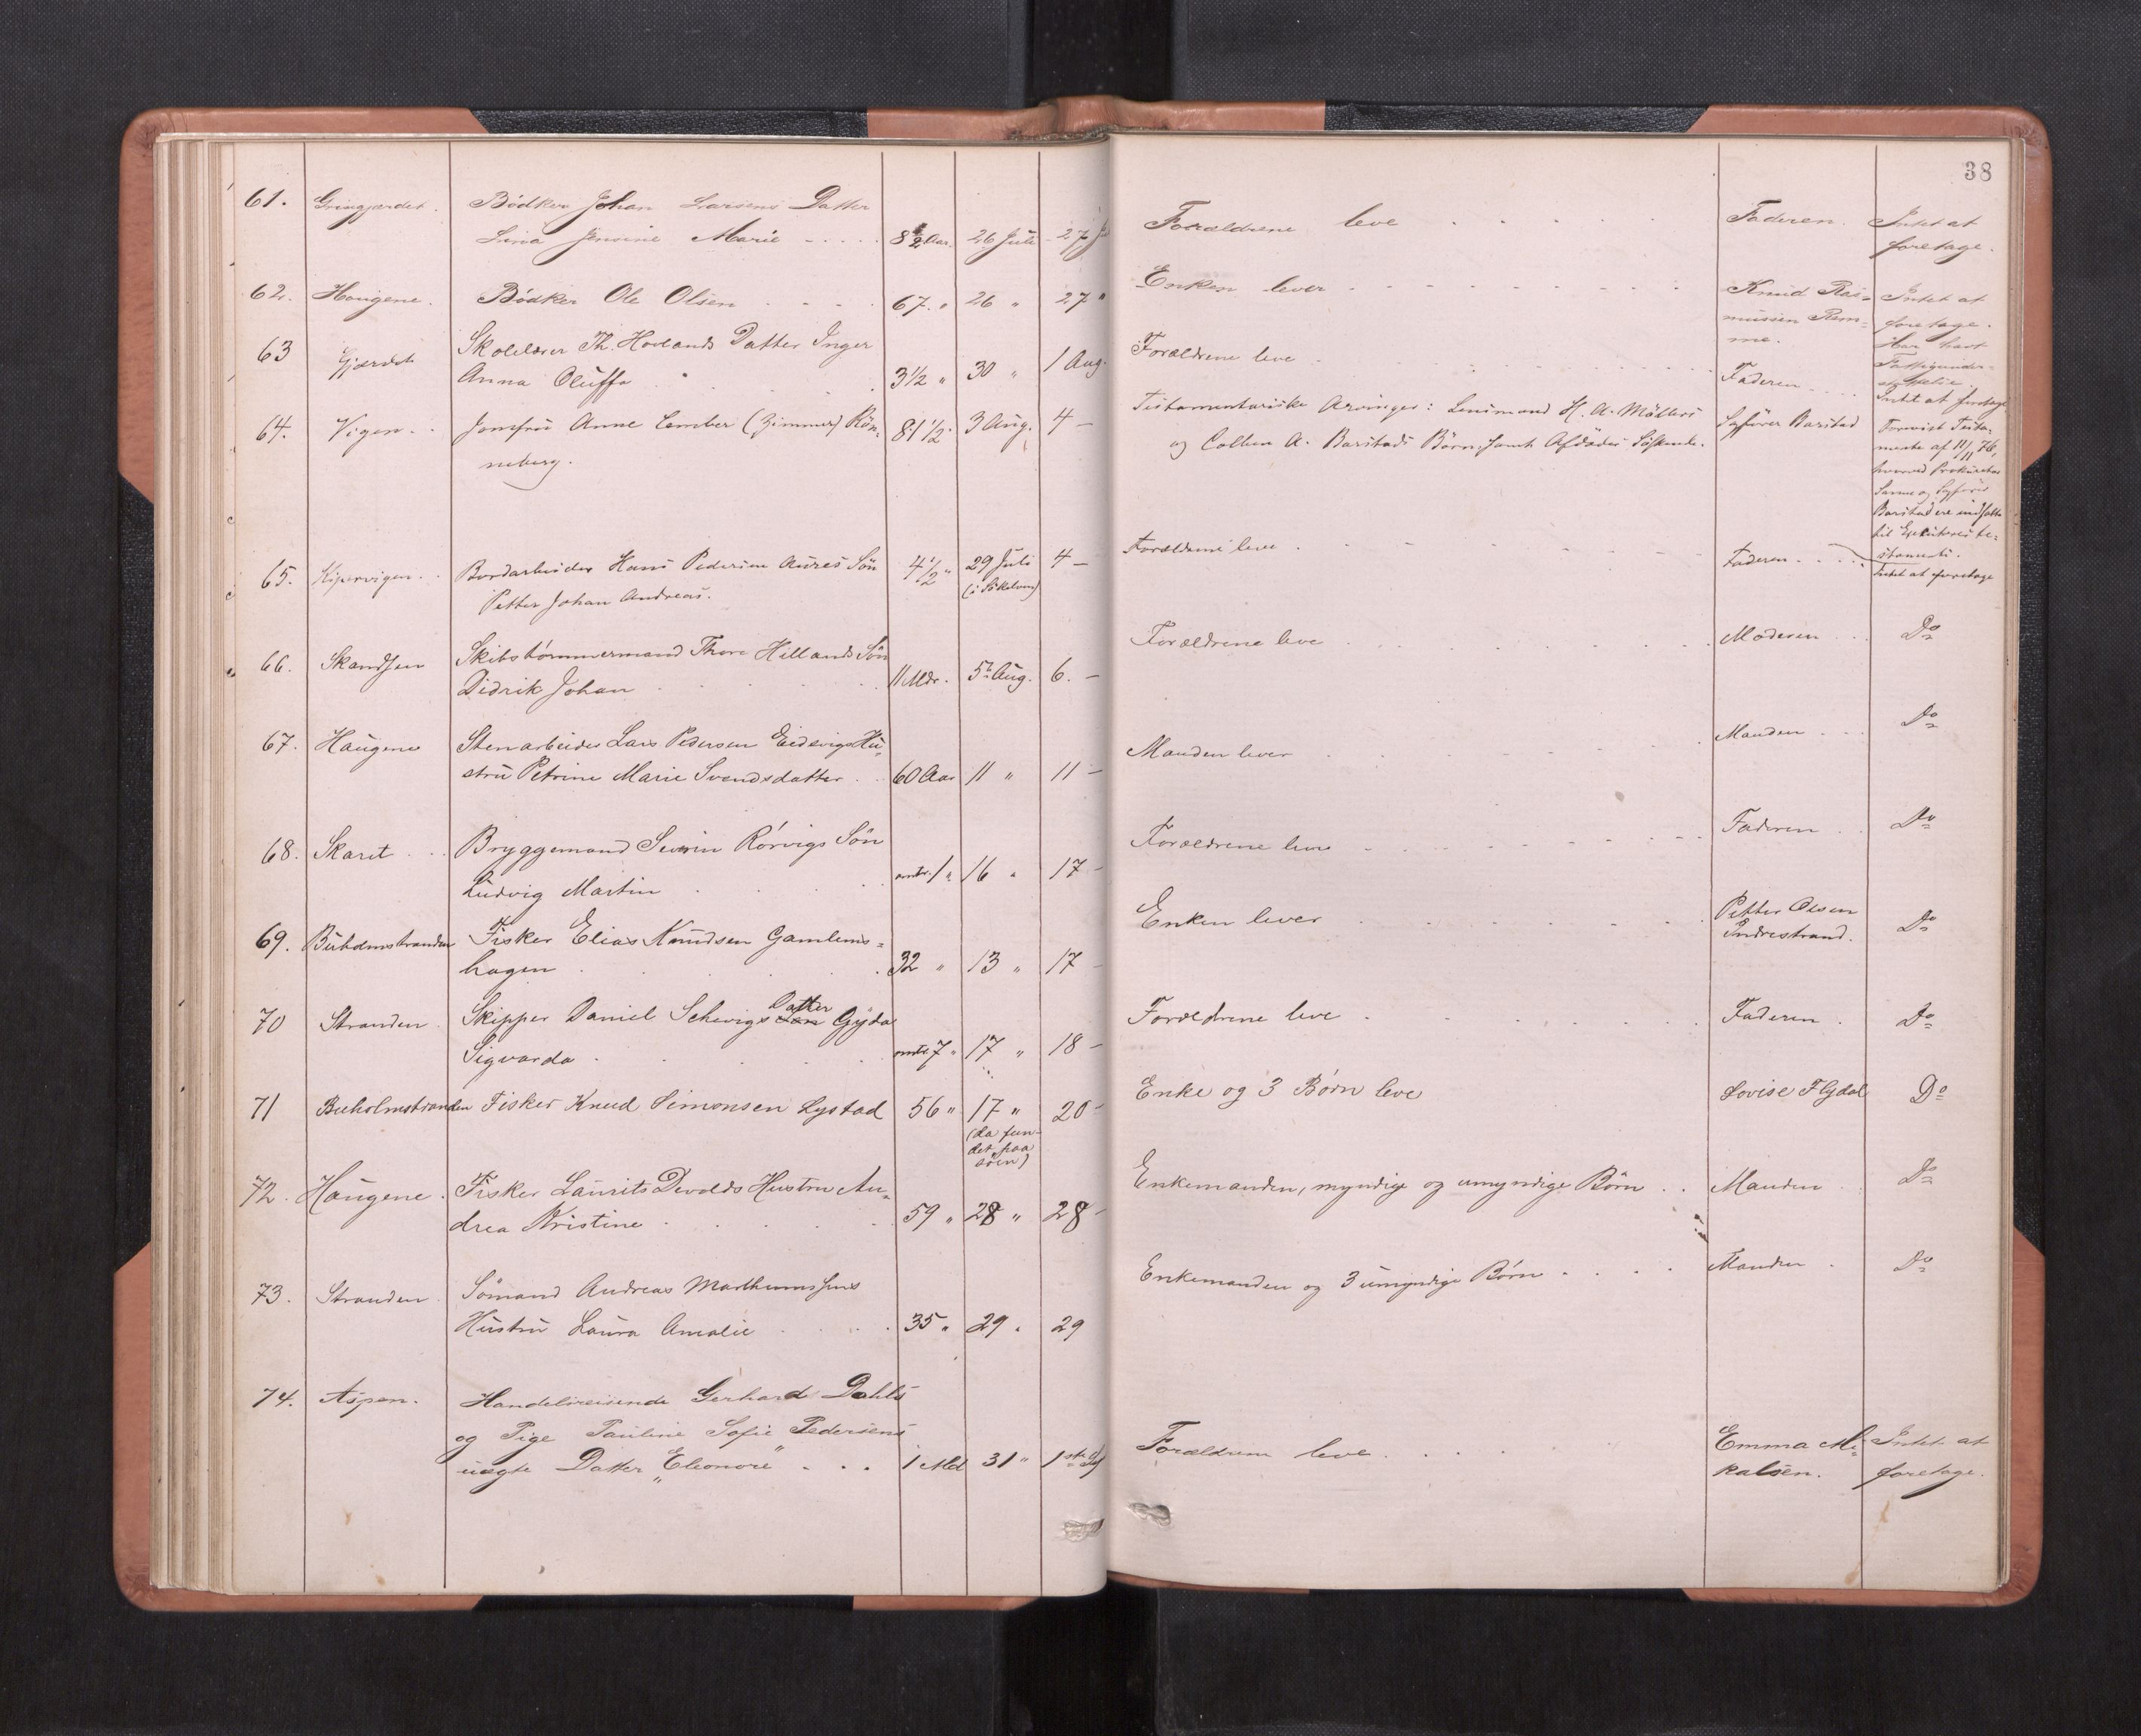 38
61. Gringjærdet. Bødker Johan Larsens Datter
Lina Jensine Marie 8 1/2 Aar. 26 Juli 27 Forældrene leve Faderen. Intet at
foretage.
62. Haugene. Bødker Ole Olsen 67. " 26 " 27 " Enken lever Knud Ras-
mussen Rem-
me. Intet at
foretage.
Har havt
Fattigunder-
støttelse.
63 Gjærdet Skolelærer Th. Hovlands Datter Inger
Anna Oluffa 3 1/2 " 30 " 1 Aug. Forældrene leve Faderen Intet at foretage
64. Vigen Jomfru Anne Cember (Zimmer) Rön-
neberg. 81 1/2 3 Aug. 4 — Testamentariske Arvinger: Lensmand H. A. Möllers
og A. Barstads Börn, samt Afdödes Söskende. Sagförer Barstad
mente af 11/11 76,
hvorved Prokurator
og Sagförer
Barstad ere indsatte
til Executores te-
stamenti.
65. Kipervigen Bordarbeider Hans Pedersen Aures Sön
Petter Johan Andreas. 4 1/2 " 29 Juli 4 — Forældrene leve Faderen Intet at foretage
66. Skandsen Skibstömmermand Thore Hillands Sön
Didrik Johan 11 Mdr. 5te Aug. 6. — Forældrene leve Moderen Do
67. Haugene Stenarbeider Lars Pedersen Eidsvigs Hu-
stru Petrine Marie Svendsdatter 60 Aar 11 " 11 — Manden lever Manden Do
68. Skaret Bryggemand Severin Rörvigs Sön
Ludvig Martin omtr. 1 " 16 " 17 — Forældrene leve Faderen Do
69. Buholmstranden Fisker Elias Knudsen Gamlems-
hagen 32 " 13 " 17 — Enken lever Petter Olsen
Indrestrand. Do
70 Stranden Skipper Daniel Schevigs Datter Gyda
Sigvarda omtr 7 " 17 " 18 — Forældrene leve Faderen Do
71 Buholmstranden Fisker Knud Simonsen Lystad 56 " 17 " 20 — Enke og 3 Börn leve Lovise Flydal Do
(da fun-
det paa
söen)
72. Haugene Fisker Laurits Devolds Hustru An-
drea Kristine 59 " 28 " 28 — Enkemanden, myndige og umyndige Börn Manden Do
73. Stranden Sömand Andreas Marthinussens
Hustru Laura Amalie 35 " 29 " 29 Enkemanden og 3 umyndige Börn Manden Do
74. Aspen. Handelsreisende Gerhard Dahls
og Pige Pauline Sofie Pedersens
uægte Datter „Eleonore" 1 Md 31 " 1ste Forældrene leve Emma Mi-
kalsen. Intet at
foretage.